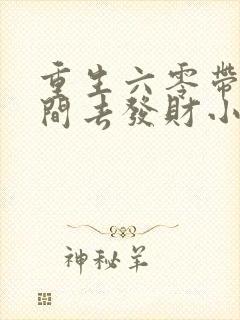 重生六零帶
間去發財小
神秘羊